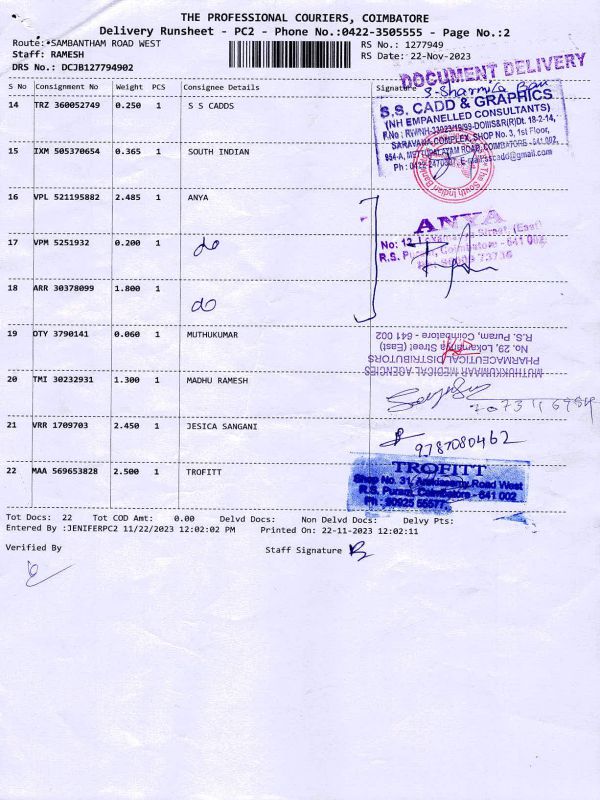 THE PROFESSIONAL COURIERS, COIMBATORE
Delivery Runsheet - PC2 - Phone No.:0422-3505555 - Page No.:2
Route: SAMBANTHAM ROAD WEST RS No.: 1277949
Staff: RAMESH RS Date: 22-Nov-2023
DRS No.: DCJB127794902
DOCUMENT DELIVERY
S No Consignment No Weight PCS Consignee Details Signature
14 TRZ 360052749 0.250 1 S S CADDS
S.S. CADD & GRAPHICS
(NH EMPANELLED CONSULTANTS)
SARAVANA COMPLEX, SHOP No. 3, 1st Floor,
954-A, METTUPALAYAM ROAD, COIMBATORE - 641 002,
15 IXM 505370654 0.365 1 SOUTH INDIAN
The South Indian Bank
16 VPL 521195882 2.485 1 ANYA
ANYA
No: 12, Street, (East)
R.S. Puram, Coimbatore - 641 002
17 VPM 5251932 0.200 1 do
18 ARR 30378099 1.800 1 do
19 OTY 3790141 0.060 1 MUTHUKUMAR
MUTHUKKUMAR MEDICAL AGENCIES
PHARMACEUTICAL DISTRIBUTORS
No. 29, Lokamanya Street (East)
R.S. Puram, Coimbatore - 641 002
20 TMI 30232931 1.300 1 MADHU RAMESH
21 VRR 1709703 2.450 1 JESICA SANGANI
9787080462
22 MAA 569653828 2.500 1 TROFITT
TROFITT
Shop No. 31, Arokiasamy Road West
R.S. Puram, Coimbatore - 641 002
Tot Docs: 22 Tot COD Amt: 0.00 Delvd Docs: Non Delvd Docs: Delvy Pts:
Entered By :JENIFERPC2 11/22/2023 12:02:02 PM Printed On: 22-11-2023 12:02:11
Verified By Staff Signature